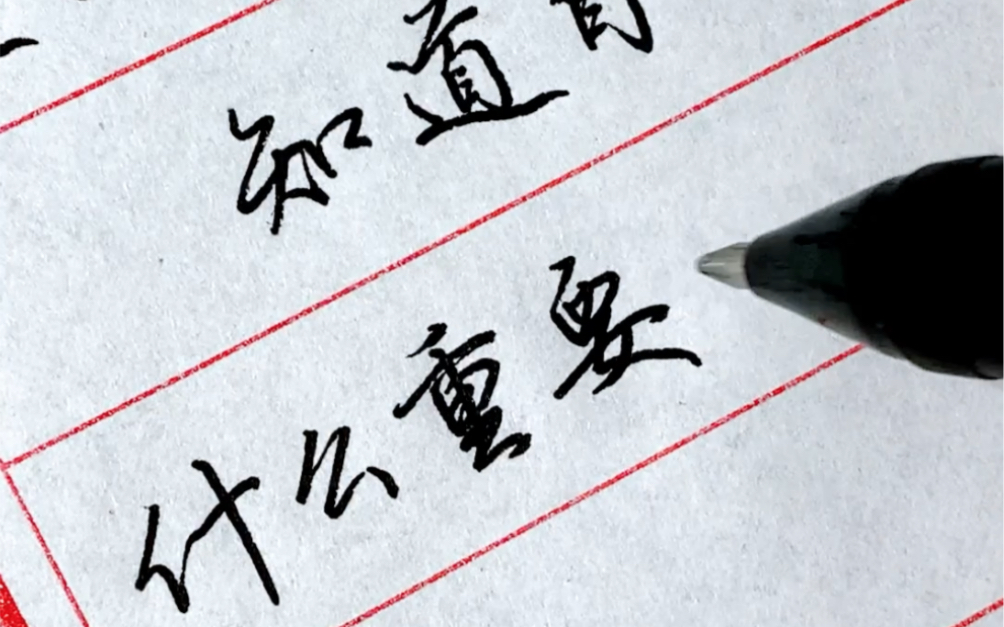 知道
什么重要